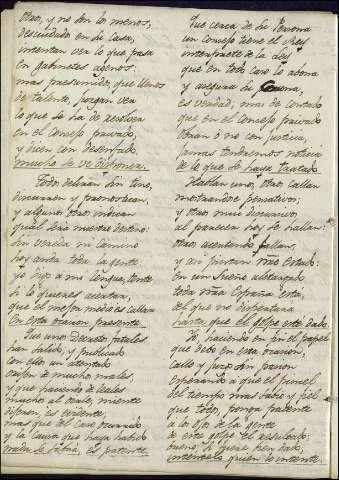 Otros, y no son los menos,
descuidado en su casa,
intentan ver lo que pasa
en gabinetes agenos:
mas presumido, que llenos
de talento, juzgan ven
lo que se ha de resolver
en el Consejo privado,
y dicen con desenfado
mucho se ve disponer.
Todos deliran sin tino,
discurren y pronostican,
y algunos otros indican
qual será nuestro destino:
Sin senda ni camino
hoy anda toda la gente:
yo digo a mi lengua, tente
si lo quieres acertar,
que el mejor medio es callar
en esta ocasion presente.
Que unos Decretos fatales
han salido, y publicado
con ello un atentado
origen de muchos males,
y que haciendo de leales
mucho al otro, miente
difieren, es evidente,
mas que el Caso ocurrido
y la Causa que haya habido
nada se sabrá, es patente
Que cerca de su Persona
un Consejo tiene el Rey
interprete de la ley
que en todo caso lo abona
y asegura su Corona,
es verdad; mas de contado
que en el Consejo privado
obran ó no con justicia,
jamas tendremos noticia
de lo que se haya tratado.
Hablan unos, otros callan
mostrandose pensativos;
y otros muy discursivos,
al parecer hoy se hallan:
otros asentando fallan,
y asi pintan nuestro estado:
en un sueño aletargado
toda nuestra España está,
del que no dispertará
hasta que el golpe esté dado.
Yo, haciendo en fin el papel
que debo en esta ocasion,
callo y juzgo con razon
esperando a que el pincel
del tiempo mas sabio y fiel
que todos, ponga patente
a los ojos de la gente
de este golpe el resultado:
bueno, si fuese bien dado,
intentelo quien lo intente.